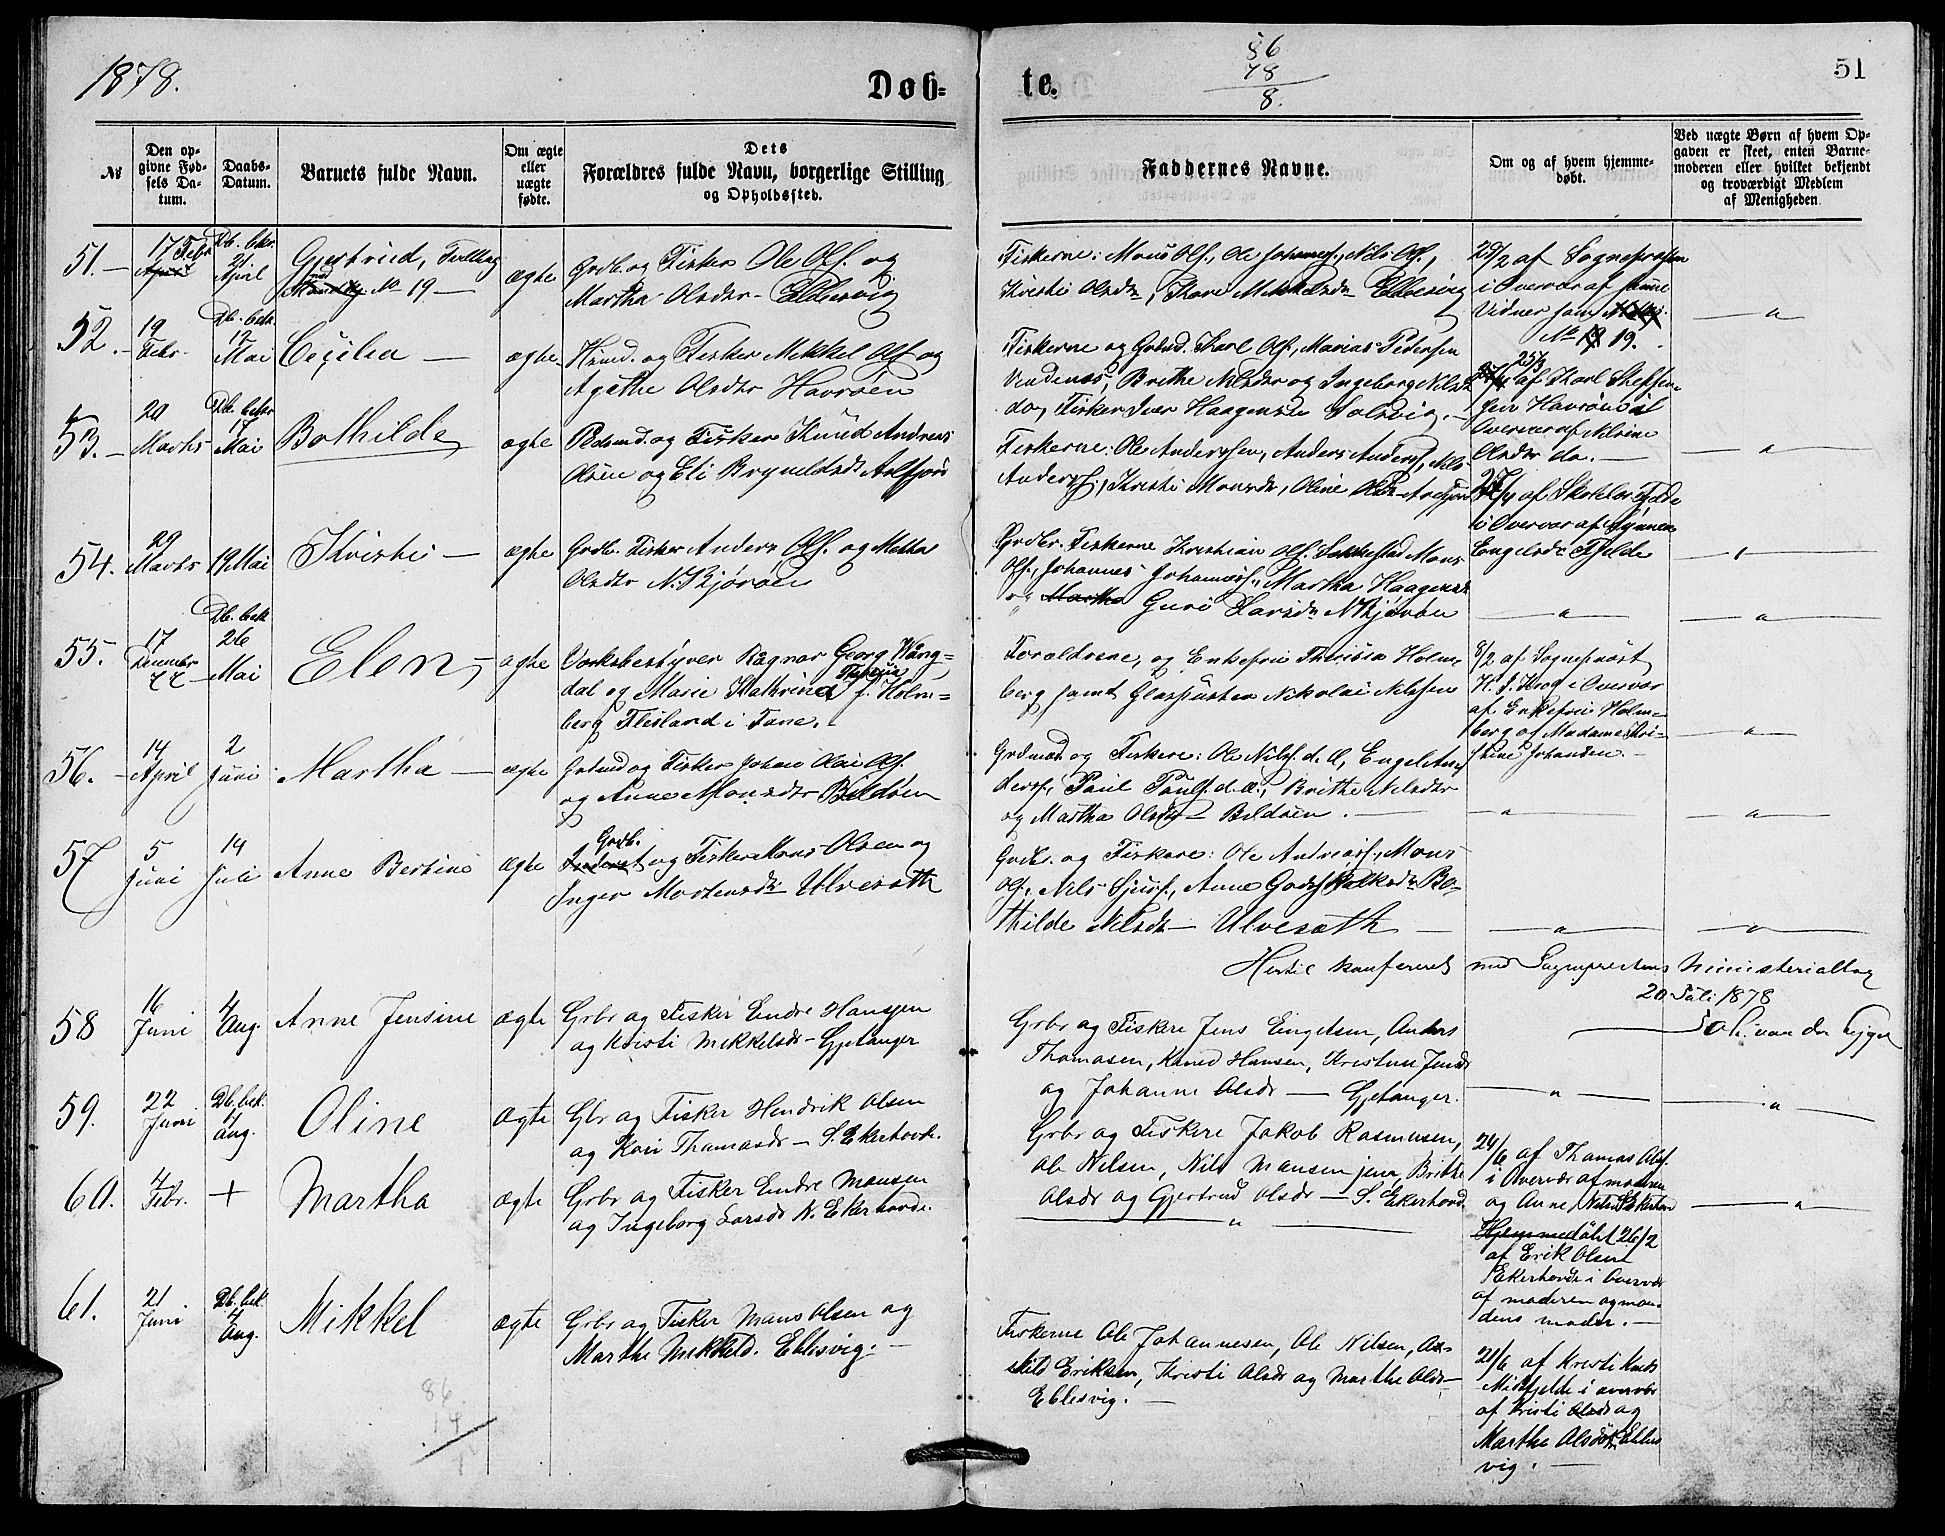 1878.
Døb=
te.
86
78
8.
51
№
Den op-
givne Fød-
sels Da-
tum.
Daabs-
Datum.
Barnets fulde Navn.
Om ægte
eller
uægte
fødte.
Dets
Forældres fulde Navn, borgerlige Stilling
og Opholdssted.
Faddernes Navne.
Om og af hvem hjemme-
døbt.
Ved uægte Børn af hvem Op-
gaven er skeet, enten Barne-
moderen eller hvilket bekjendt
og troværdigt Medlem
af Menigheden.
51.
17 Febr
April
Db. bekr.
21
April
Gjertrud, Tvilling
No 19
ægte
Grdb. og Fisker Ole Ols. og
Martha Olsdtr
Fiskerne: Mons Ols., Ole Johannes., Nils Ols.,
Kristi Olsdtr, Kari Mikkelsdtr
28/2 af Sognepresten
i Overvær af samme
Vidner som
No 19.
52.
19
Febr.
Db. bekr.
12
Mai
Cecilia
ægte
Husmd. og Fisker Mikkel Ols. og
Agathe Olsdtr Havröen
Fiskerne og Grdmd. Karl Ols., Marius Pedersen
Vindenes, Brithe Nilsdtr og Ingeborg Nilsdtr
do, Fisker Iver Haagensen Solsvig.
25/3
af Karl Steffen-
sen Havröen i
Overvær af
Olsdtr do.
53.
20
Marts
Db. bekr
17
Mai
Bothilde
ægte
og Fisker Knud Andreas
Olsen og Eli Bryneldsdtr
Fiskerne: Ole Anderssen, Anders Anders., Nils
Anders., Kristi Monsdtr, Oline Olsdtr
af Skoleholder Fjelde
i Overvær af
Engelsdtr Fjelde
54.
29
Marts
19 Mai
Kristi
ægte
Grdbr. Fisker Anders Ols. og Metha
Olsdtr N. Skjöröen
Grdbr. Fiskerne Kristian Ols. Mons
Ols., Johannes Johannes., Martha Haagensdtr
og Martha Guro Larsdtr N Skjöröen
55.
17
December
77
Db. bekr
26
Mai
Elen
ægte
Værksbestyrer Ragnar Georg Wång-
dal og Marie Kathrina Theresia f. Holm-
berg Flesland i Fane.
Forældrene, og Enkefru Theresia Holm-
berg samt Glaspuster Nikolai Nilssen
8/2 af Sogneprest
H. J. Krog i Overvær
af Enkefru Holm-
berg og Madame Kri-
stine Johansen.
56.
14
April
2
Juni
Martha
ægte
Grdmd og Fisker Johan Olai Ols.
og Anne Monsdtr Bildöen
Grdmænd og Fiskere: Ole Nils. d. Æ, Engel An-
ders., Paul Pauls. d. æ., Brithe Nilsdtr
og Martha Olsdtr Bildöen.
57
5
Juni
14
Juli
Anne Bertine
ægte
Grdb.
og Fisker Mons Olsen og
Inger Mortensdtr Ulvesæth
Grdbr. og Fiskere: Ole Andreas., Mons
Ols., Nils Sjurs., Anne Godskalksdtr Bo-
thilde Nilsdtr Ulvesæth
Hertil konfereret med Sogneprestens Ministerialbog
20 Juli 1878
van der Lippe
58
16
Juni
4
Aug.
Anne Jensine
ægte
Grbr og Fisker Endre Hansen
og Kristi Mikkelsdr Gjetanger
Grbr og Fiskere Jens Engelsen, Anders
Thomasen, Knud Hansen, Kristine Jensdr
og Johanne Olsdr Gjetanger.
59.
22
Juni
Db. bek.
4
Aug.
Oline
ægte
Gbr og Fisker Hendrik Olsen
og Kari Thomasdr S. Ekerhovde.
Grbr og Fiskere Jakob Rasmusen,
Ole Nilsen, Nils Mansen junr, Brithe
Olsdr og Gjertrud Olsdr S. Ekerhovd.
24/6 af Thomas Ols.
i Overvær af moderen
og Anne Nilsdr S Ekerhov
60.
4
Febr.
+
Martha
ægte
Grbr og Fisker Endre Mansen
og Ingeborg Larsdr N. Ekerhovde.
Hjemmedøbt 26/2
af Erik Olsen
Ekerhovde i Overvær
af moderen og man-
dens moder.
61.
21
Juni
Db. bek.
4
Aug.
Mikkel
ægte
Grbr og Fisker Mans Olsen og
Marthe Mikkelsd. Eblesvig.
Fiskerne Ole Johannesen, Ole Nilsen, As-
kild Eriksen, Kristi Olsdr og Marthe Olsdr
Eblesvig.
21/6 af Kristi Knutsdr
Midtfjelde i overvær
af Kristi Olsdr og
Marthe Olsdr Ebles
vig.
86